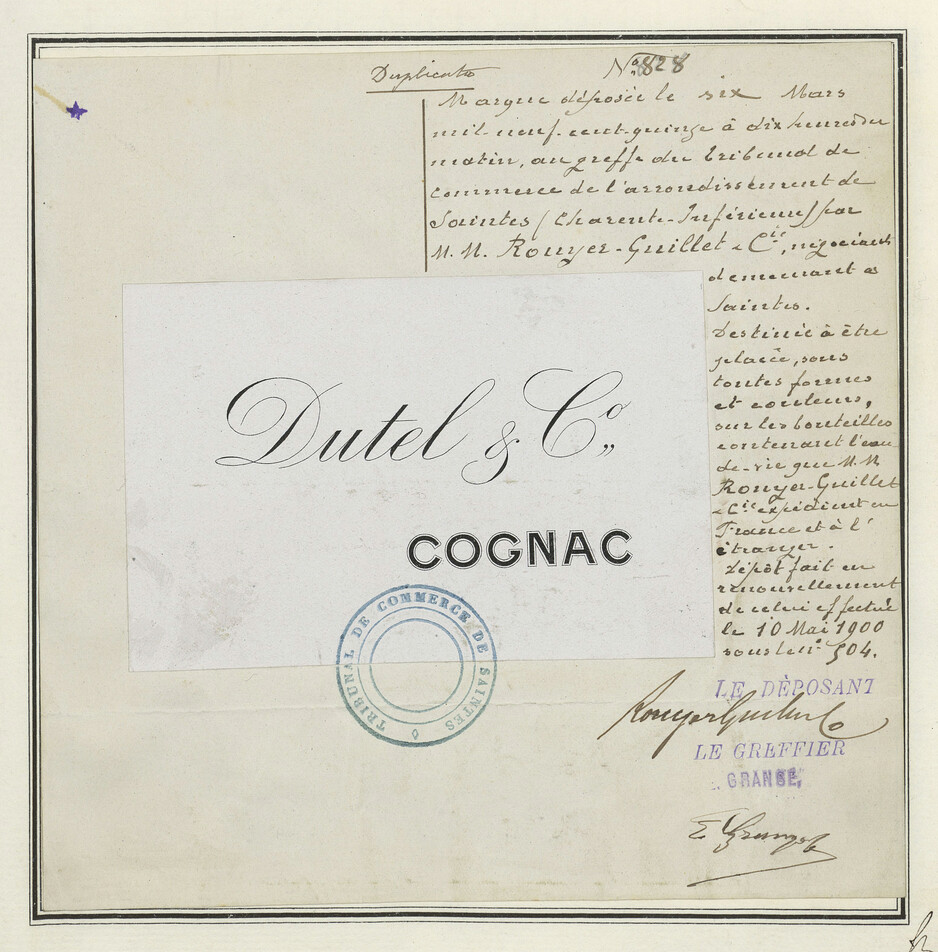 Duplicata
N° 828
Marque déposée le six Mars
mil-neuf-cent-quinze à dix heures du
matin, au greffe du tribunal de
commerce de l'arrondissement de
Saintes (Charente-Inférieure) par
M.M. Rouyer-Guillet & Cie, négociants
demeurant à
Saintes.
Destinée à être
placée, sous
toutes formes
et couleurs,
sur les bouteilles
contenant l'eau-
de-vie que M.M
Rouyer-Guillet
& Cie expédient en
France et à l'
étranger.
Dépôt fait en
renouvellement
de celui effectué
le 10 Mai 1900
sous le n° 504.
Dutel & Co.,,
COGNAC
TRIBUNAL DE COMMERCE DE SAINTES
LE DÉPOSANT
Rouyer Guillet & Co
LE GREFFIER
GRANGE,
E. Grange